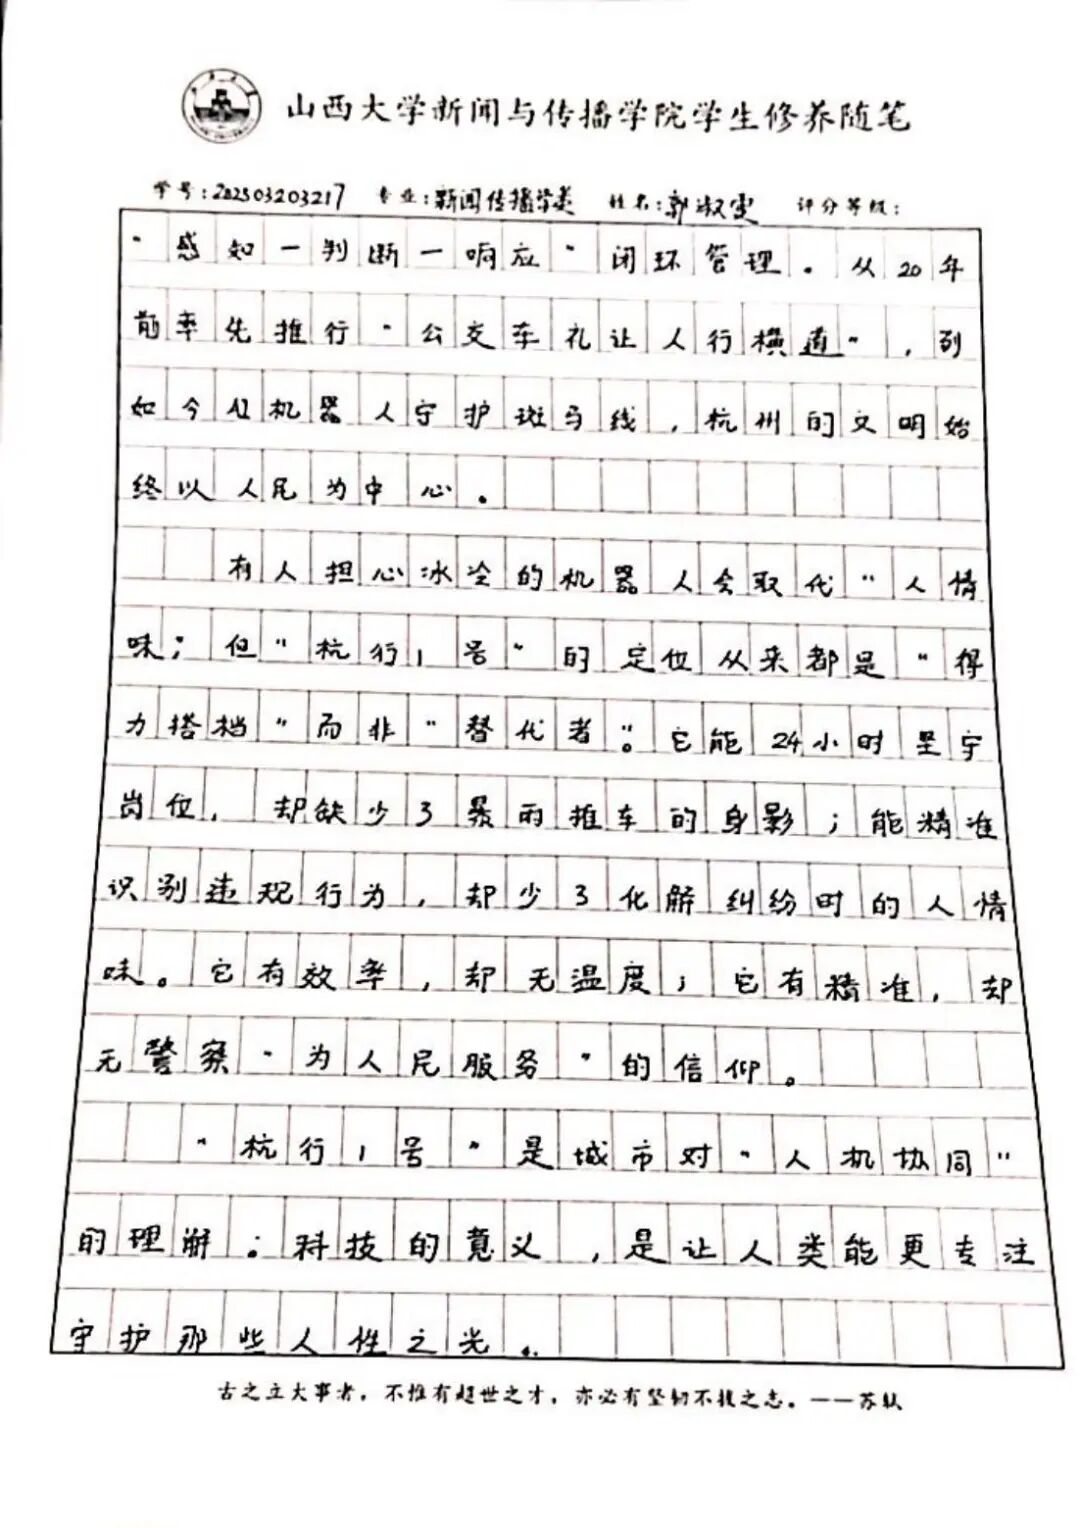 山西大学新闻与传播学院学生修养随笔
学号:202503203217 专业:新闻传播学类 姓名:郭淑雯 评分等级:
“感知一判断一响应”闭环管理。从20年
前率先推行“公交车礼让人行横道”,到
如今AI机器人守护斑马线,杭州的文明始
终以人民为中心。
有人担心冰冷的机器人会取代“人情
味;但“杭行1号”的定位从来都是“得
力搭档”而非“替代者”。它能24小时坚守
岗位,却缺少了暴雨推车的身影;能精准
识别违规行为,却少了化解纠纷时的人情
味。它有效率,却无温度;它有精准,却
无警察“为人民服务”的信仰。
“杭行1号”是城市对“人机协同”
的理解:科技的意义,是让人类能更专注
守护那些人性之光。
古之立大事者,不惟有超世之才,亦必有坚韧不拔之志。——苏轼